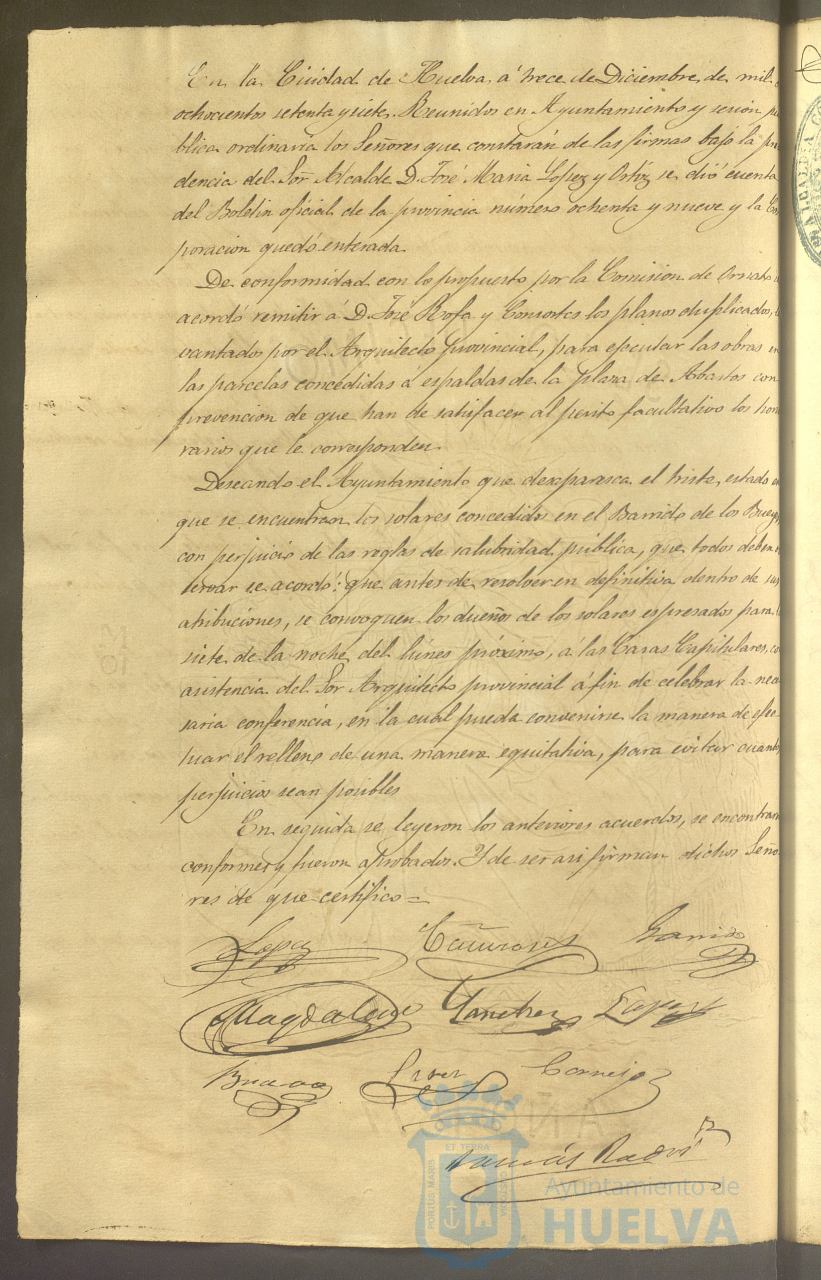 En la Ciudad de Huelva á trece de Diciembre de mil
ochocientos setenta y siete, Reunidos en Ayuntamiento y sesion pu
blica ordinaria los Señores que constarán de las firmas bajo la pre
dencia del Sor. Alcalde D. José Maria Lopez y Ortiz se dió cuenta
del Boletin oficial de la provincia número ochenta y nueve y la Cor
poracion quedó enterada
De conformidad con lo propuesto por la Comision de Ornato
acordó remitir á D. José Rofa y Consortes los planos duplicados, le
vantados por el Arquitecto provincial, para ejecutar las obras en
las parcelas concedidas á espaldas de la plaza de Abastos con
prevencion de que han de satisfacer al perito facultativo los hono
rarios que le corresponden.
Deseando el Ayuntamiento que desaparesca el triste, estado en
que se encuentran los solares concedidos en el Barrido de los Bueyes
con perjuicio de las reglas de salubridad pública, que todos deben
servar se acordó: que antes de resolver en definitiva dentro de sus
atribuciones, se convoquen los dueños de los solares espresados para
siete de la noche del lúnes próximo, á las Casas Capitulares, co
asistencia del Sor Arquitecto provincial á fin de celebrar la nece
saria conferencia, en la cual pueda convenirse la manera de efec
tuar el relleno de una manera equitativa, para evitar cuantos
perjuicios sean posibles
En seguida se leyeron los anteriores acuerdos, se encontraron
conformes y fueron aprobados. Y de ser asi firman dichos Seño
res de que certifico =
Lopez Garrido
Magdalena Sanchez Lopez
Bravo Cornejo
Tomás
ET TERRA
PORTUS MARIS
CUSTODIA
Ayuntamiento de
HUELVA
ALCALDIA CO